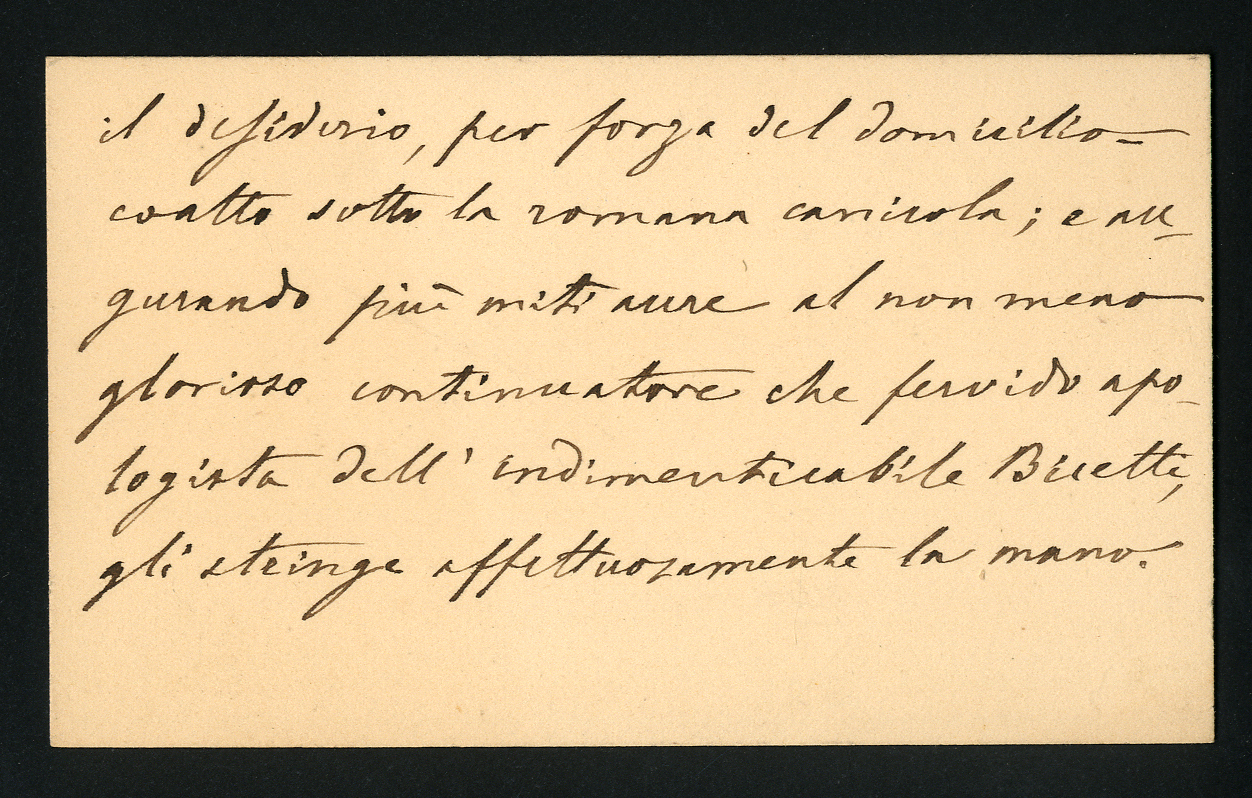 il desiderio, per forza del domicilio
coatto sotto la romana canicola; e au-
gurando più miti aure al non meno
glorioso continuatore che fervido apo-
logista dell' indimenticabile Bicetti,
gli stringe affettuosamente la mano.